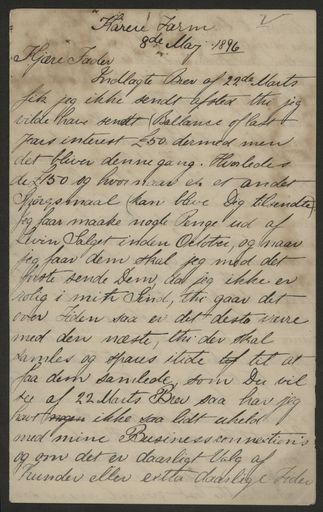 "Karere Farm"
8de Maj 1896
Kjære Fader
Indlagte Brev af 22de Marts
fik jeg ikke sendt afsted thi jeg
vilde have sendt Ballance of last
years interest £50 dermed men
det bliver denne gang. Hvorledes
de £150 og hvor naar er et andet
Spørgsmaal kan blive Dig tilsendte,
jeg faar maaske nogle Penge ud af
Levin Salget inden October, og naar
jeg faar dem skal jeg med det
første sende Dem, da jeg ikke er
rolig i mit Sind, thi gaar det
over tiden saa er det desto værre
med den næste, thi der skal
samles og spares itide til at
faa dem samlede, som Du vil
see af 22 Marts Brev saa har jeg
havt ikke saa lidt uheld
med mine Businessconnections
og om det er daarligt Valg af
Kunder eller extra daarlige Tider